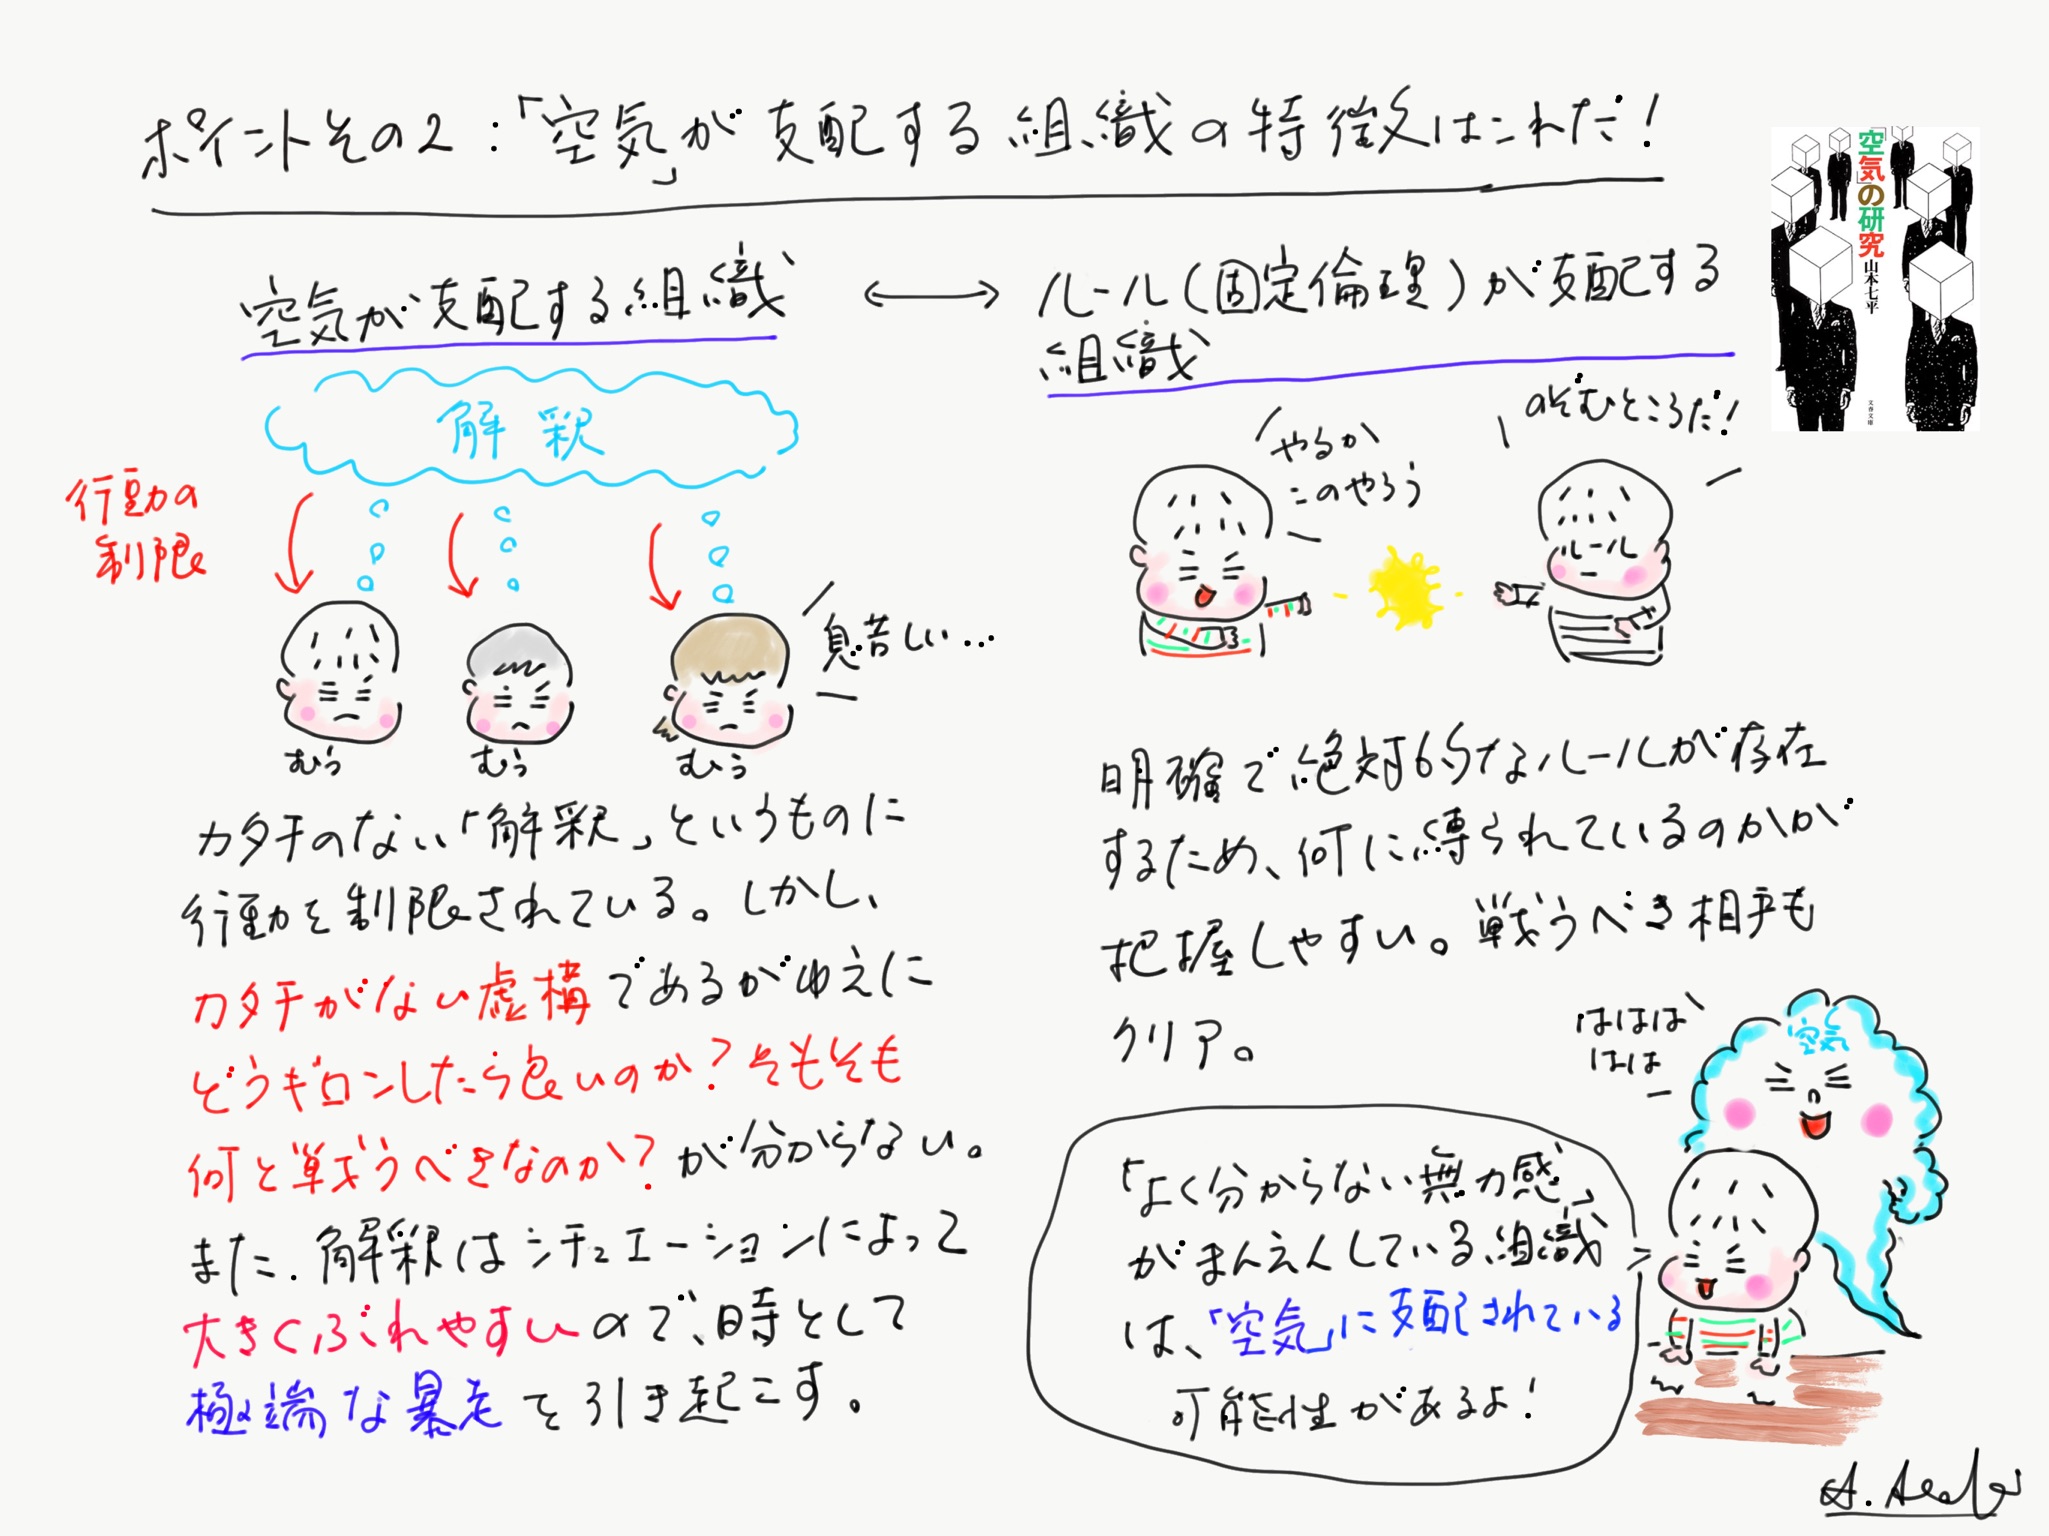 ポイントその2:「空気」が支配する組織の特徴はこれだ!
「空気」の研究
山本七平
文春文庫
空気が支配する組織
↔
ルール(固定倫理)が支配する
組織
解釈
行動の
制限
息苦しい…
むう
むう
むう
やるか
このやろう
のぞむところだ!
ルール
カタチのない「解釈」というものに
行動を制限されている。しかし、
カタチがない虚構であるがゆえに
どうギロンしたら良いのか?そもそも
何と戦うべきなのか?が分からない。
また、解釈はシチュエーションによって
大きくぶれやすいので、時として
極端な暴走を引き起こす。
明確で絶対的なルールが存在
するため、何に縛られているのかが
把握しやすい。戦うべき相手も
クリア。
ははは
はは
空気
「よく分からない無力感」
がまんえんしている組織
は、「空気」に支配されている
可能性があるよ!